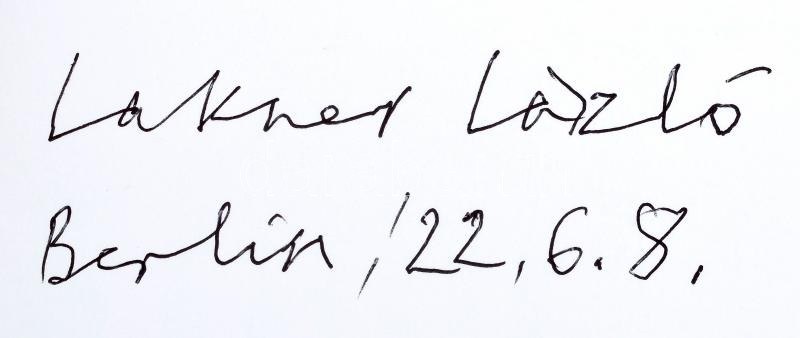 Lakner László
Berlin, '22. 6. 8.